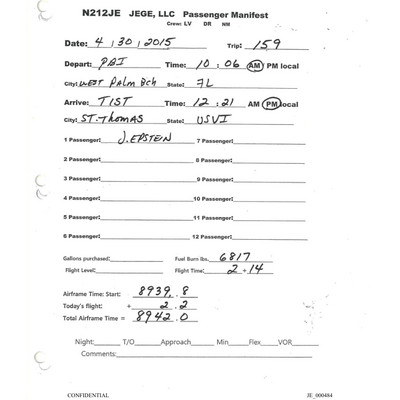 N212JE JEGE, LLC Passenger Manifest
Crew: LV DR NM
Date: 4 / 30 / 2015 Trip: 159
Depart: PBI Time: 10 : 06 AM PM local
City: WEST Palm Bch State: FL
Arrive: TIST Time: 12 : 21 AM PM local
City: ST. Thomas State: USVI
1 Passenger: J. EPSTEIN 7 Passenger:
2 Passenger: 8 Passenger:
3 Passenger: 9 Passenger:
4 Passenger: 10 Passenger:
5 Passenger: 11 Passenger:
6 Passenger: 12 Passenger:
Gallons purchased: Fuel Burn lbs. 6817
Flight Level: Flight Time: 2 + 14
Airframe Time: Start: 8939.8
Today's flight: + 2.2
Total Airframe Time = 8942.0
Night: T/O Approach Min Flex VOR
Comments:
CONFIDENTIAL JE_000484